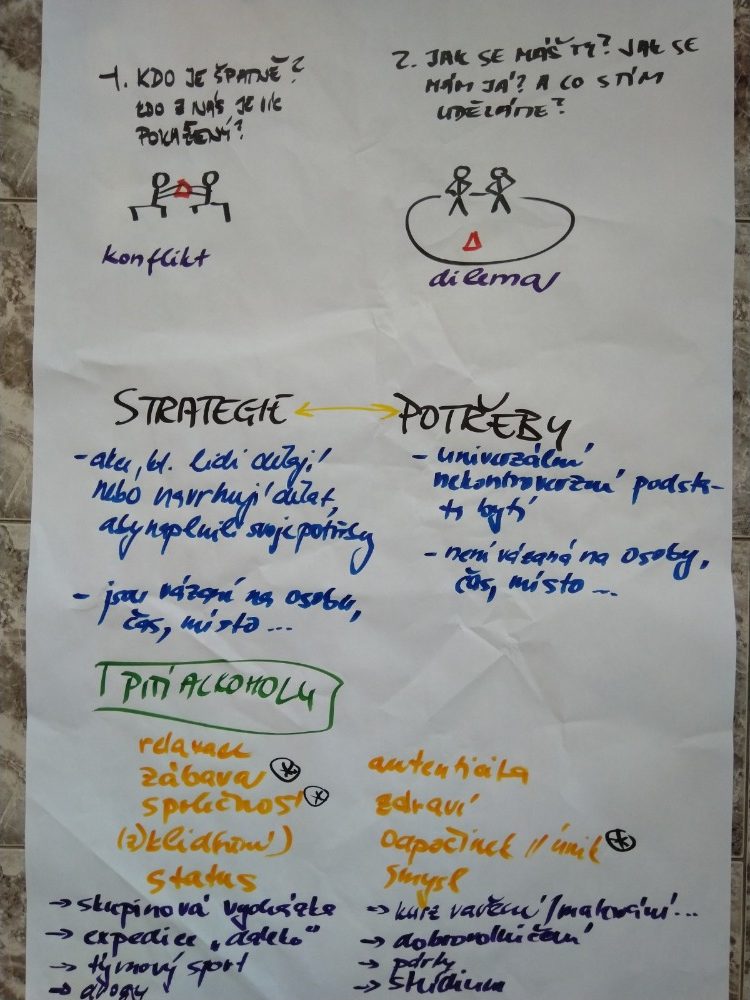 1. KDO JE ŠPATNĚ?
KDO Z NÁS JE VÍC
POKAŽENÝ?
konflikt
2. JAK SE MÁŠ TY? JAK SE
MÁM JÁ? A CO S TÍM
UDĚLÁME?
dilema
STRATEGIE
POTŘEBY
- akce, kt. lidi dělají
nebo navrhují dělat,
aby naplnili svoje potřeby
- jsou vázaní na osobu,
čas, místo...
- univerzální
nekontroverzní podsta-
ta bytí
- není vázaná na osoby,
čas, místo...
PITÍ ALKOHOLU
relaxace
zábava
společnost
(z)klidnění)
status
autenticita
zdraví
odpočinek // únik
smysl
→ skupinová vycházka
→ expedice „daleko"
→ týmový sport
→ drogy
→ kurz vaření/malování...
→ dobrovolničení
→ párty
→ studium